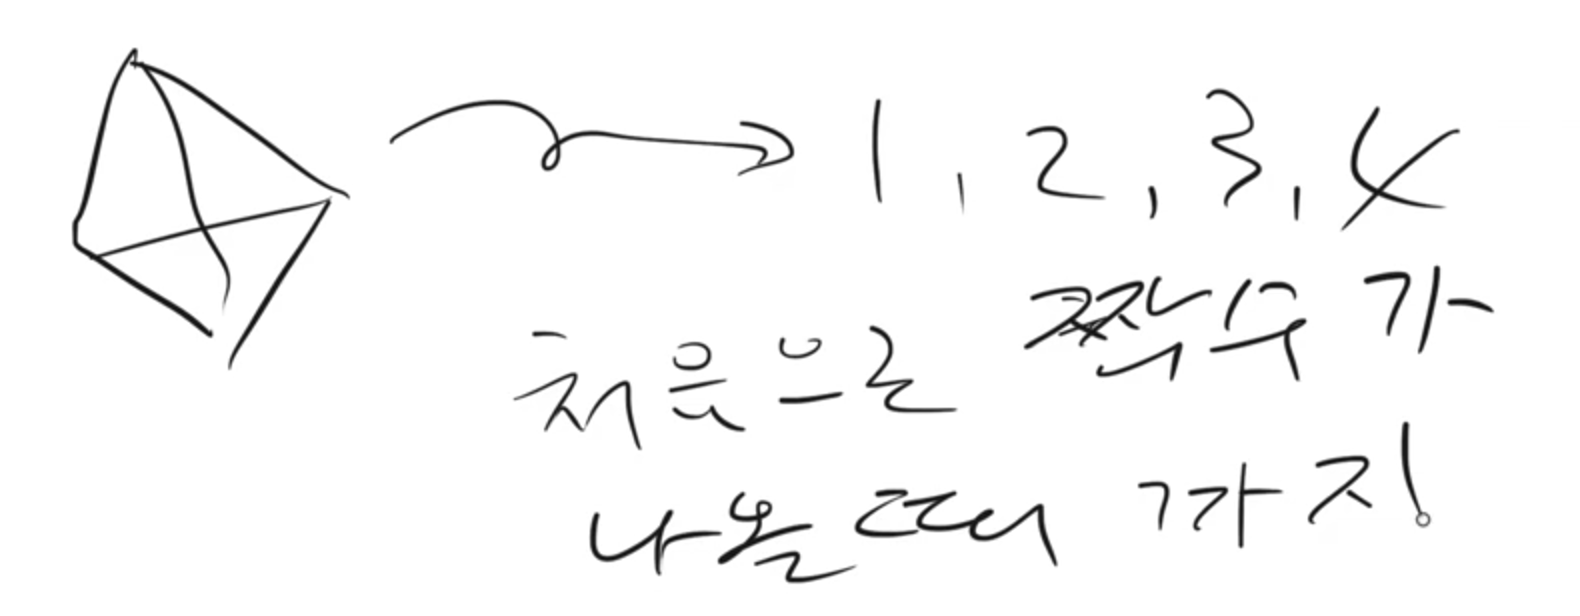 1, 2, 3, 4
처음으로 짝수가
나올 때 까지!